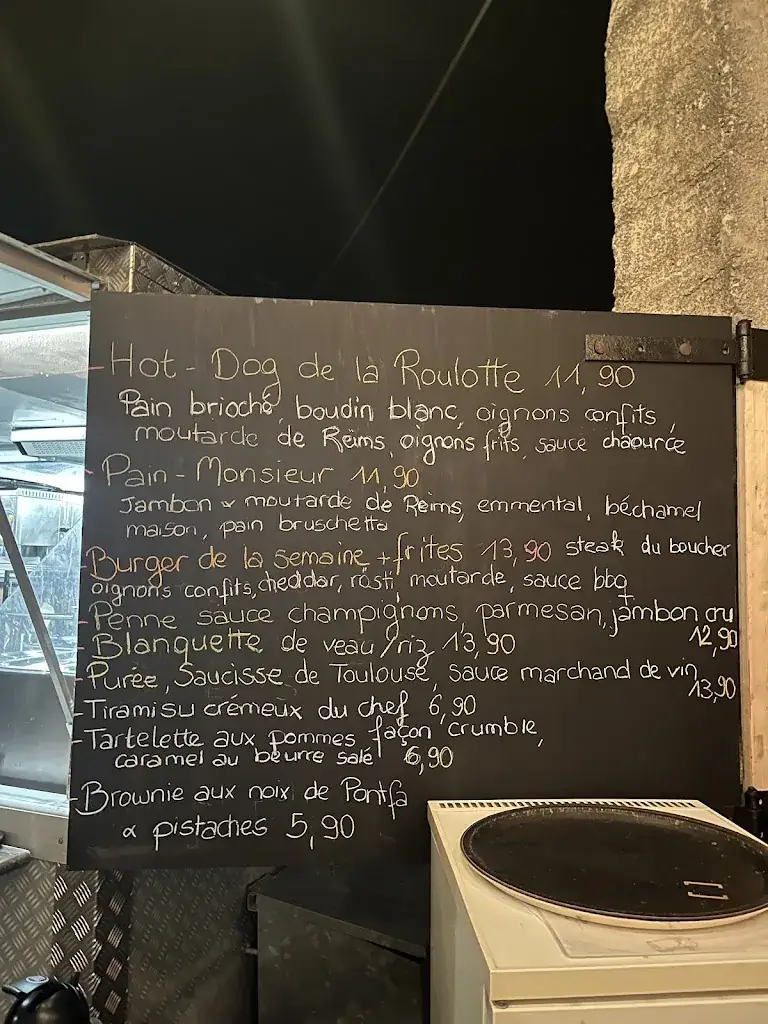 - Hot-Dog de la Roulotte 11,90
Pain brioché, boudin blanc, oignons confits,
moutarde de Reims, oignons frits, sauce chaource
- Pain-Monsieur 11,90
Jambon & moutarde de Reims, emmental, béchamel
maison, pain bruschetta
- Burger de la semaine + frites 13,90 steak du boucher
oignons confits, cheddar, rösti, moutarde, sauce bbq
- Penne sauce champignons, parmesan, jambon cru
12,90
- Blanquette de veau / riz 13,90
- Purée, Saucisse de Toulouse, sauce marchand de vin
13,90
- Tiramisu crémeux du chef 6,90
- Tartelette aux pommes façon crumble,
caramel au beurre salé 6,90
- Brownie aux noix de
& pistaches 5,90